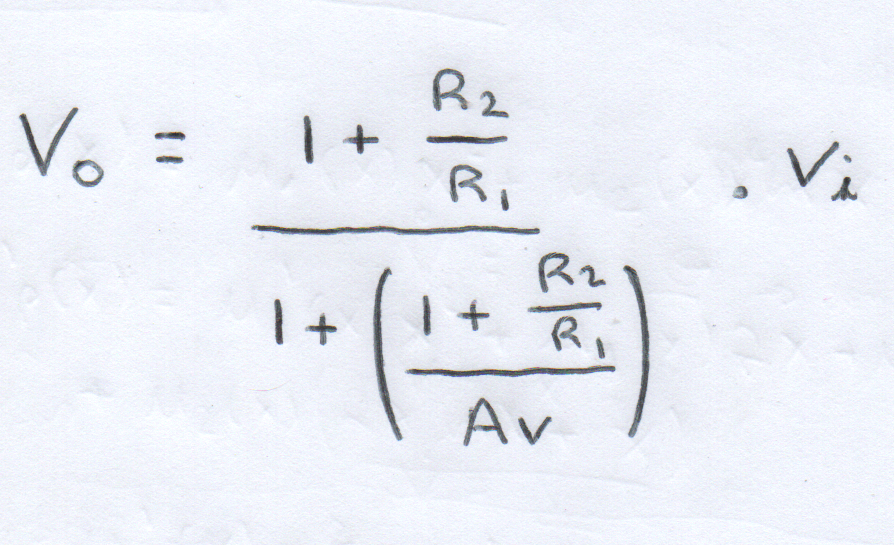 V₀ = (1 + R₂/R₁) / (1 + ((1 + R₂/R₁) / Av)) . Vi